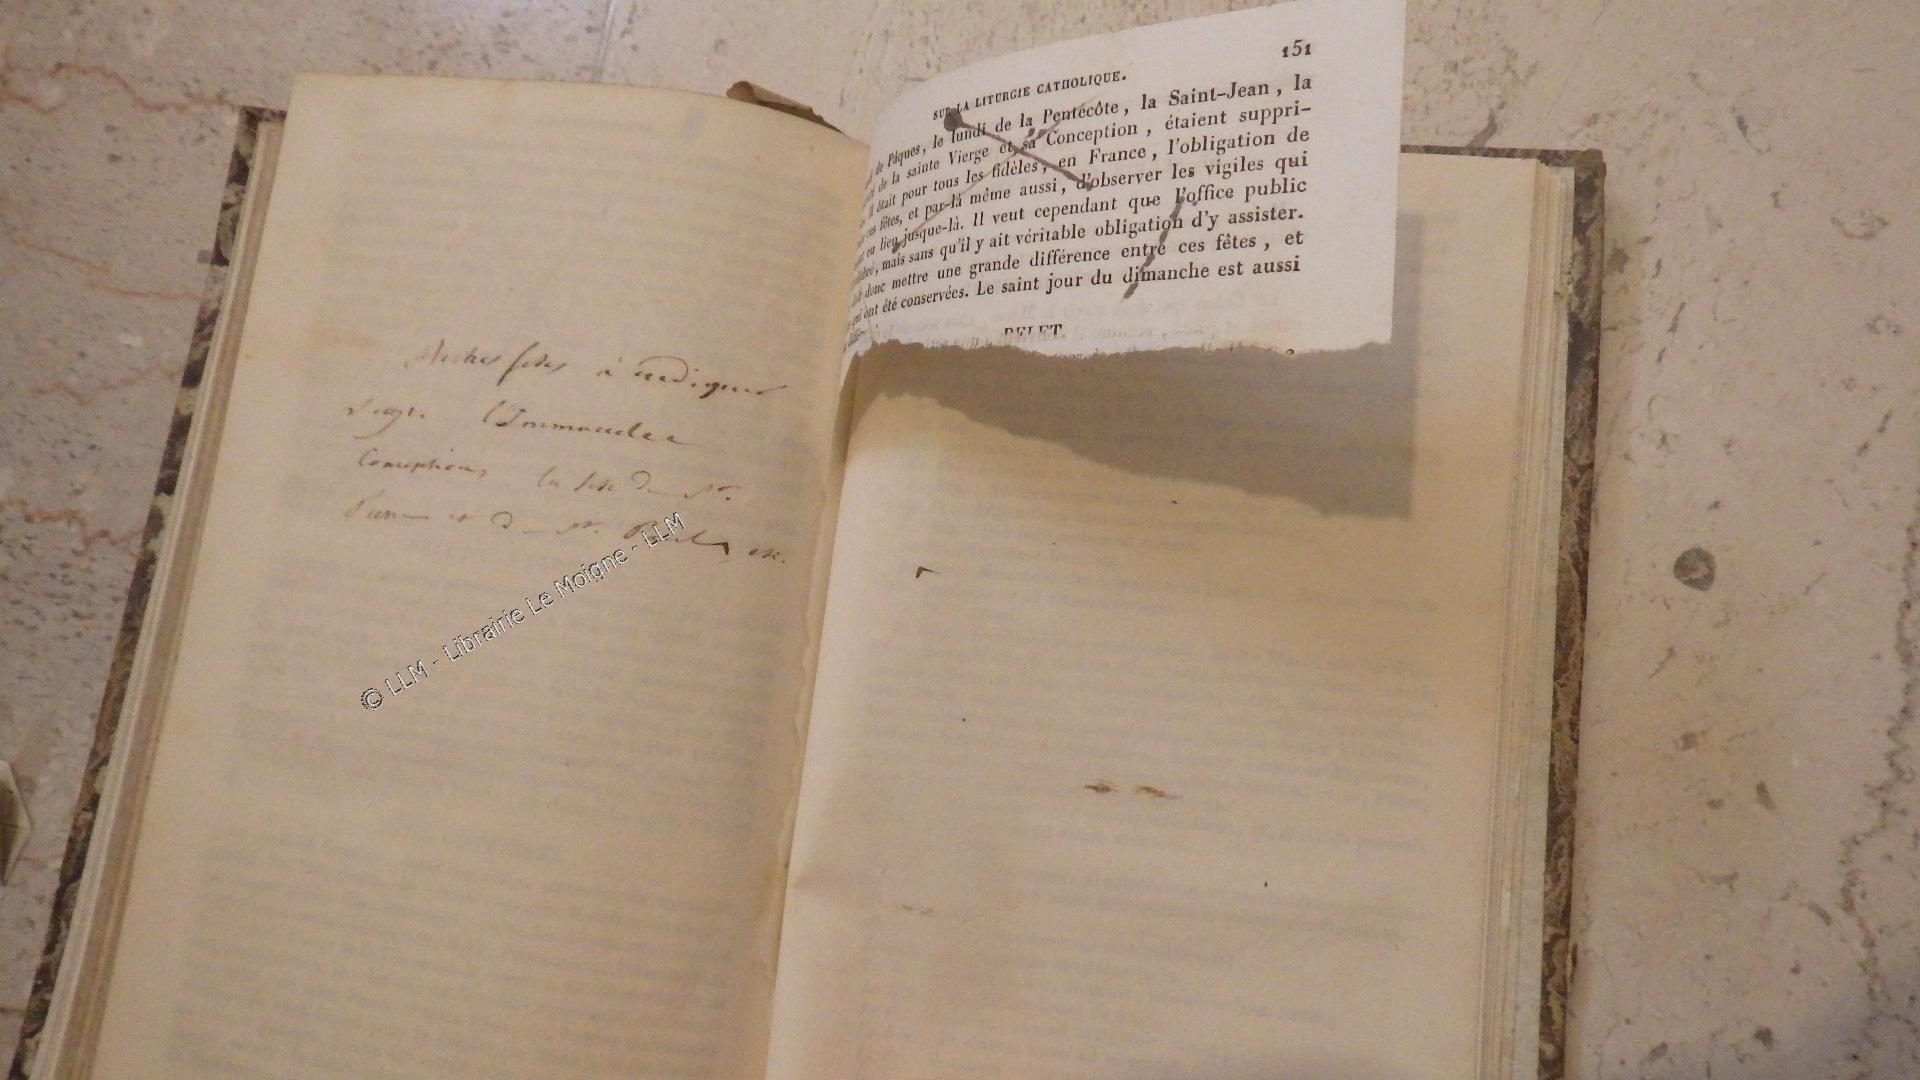 fetes à
l'Immaculee
Conception, la fete de St.
Pierre et de St. Paul, etc.
© LLM - Librairie Le Moigne - LLM
151
SUR LA LITURGIE CATHOLIQUE.
de Pâques, le lundi de la Pentecôte, la Saint-Jean, la
de la sainte Vierge et sa Conception, étaient suppri-
Il ôtait pour tous les fidèles, en France, l'obligation de
ces fêtes, et par-là même aussi, d'observer les vigiles qui
eu lieu jusque-là. Il veut cependant que l'office public
mais sans qu'il y ait véritable obligation d'y assister.
donc mettre une grande différence entre ces fêtes, et
qui ont été conservées. Le saint jour du dimanche est aussi